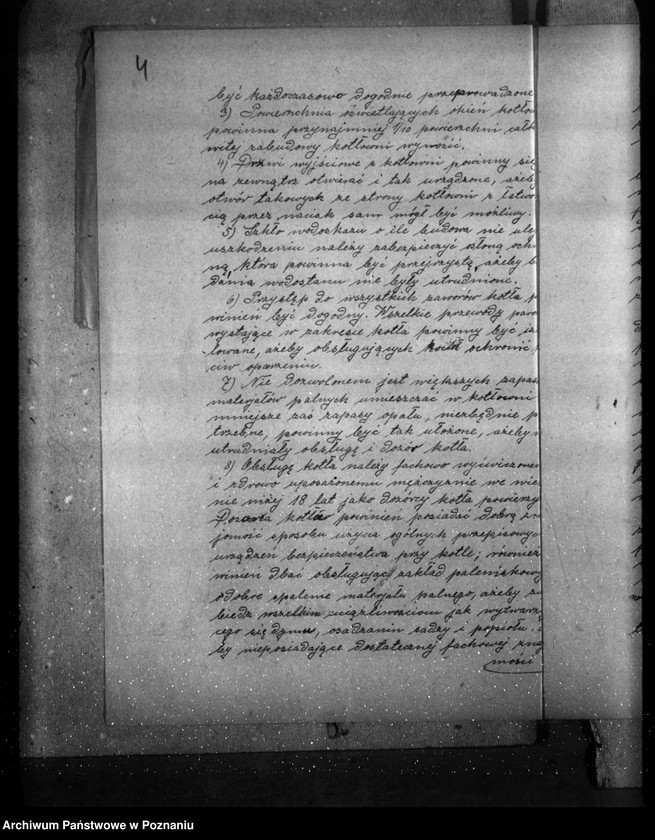 4
być każdoczasowo dogodnie przeprowadzone
3) Powierzchnia oświetlających okien kotło
powinna przynajmniej 1/10 powierzchni całk
witej zabudowy kotłowni wynosić.
4) Drzwi wyjściowe z kotłowni powinny się
na zewnątrz otwierać i tak urządzone, ażeby
otwór takowych ze strony kotłowni z łatwo
cią przez nacisk sam mógł być możliwy.
5) Szkło wodoskazu o ile budowa nie ule
uszkodzeniu należy zabezpieczyć osłoną och
ną, która powinna być przejrzystą, ażeby b
dania wodostanu nie były utrudnione.
6) Przystęp do wszystkich zaworów kotła p
winien być dogodny. Wszelkie przewody paro
wystające w zakresie kotła powinny być iz
lowane, ażeby obsługujących kotła ochronić
ciw oparzeniu.
7) Nie dozwolonem jest większych zapas
materjałów palnych umieszczać w kotłowni
mniejsze zaś zapasy opału, niezbędnie p
trzebne, powinny być tak ułożone, ażeby n
utrudniały obsługę i dozór kotła.
8) Obsługę kotła należy fachowo wyćwiczonem
i zdrowo uposażonemu mężczyznie we wie
nie niżej 18 lat jako dozórcy kotła powierzy
Dozorca kotła powinień posiadać dobrą zn
jomość sposobu użycia ogólnych przepisowy
urządzeń bezpieczeństwa przy kotle; również
winień dbać obsługując zakład paleniskowy
o dobre spalenie materjału palnego, ażeby za
biedz wszelkim uciążliwościom jak wytwarza
cego się dymu, osadzanin sadzy i popiołu.
by nieposiadające dostatecznej fachowej znaj
mości
Archiwum Państwowe w Poznaniu